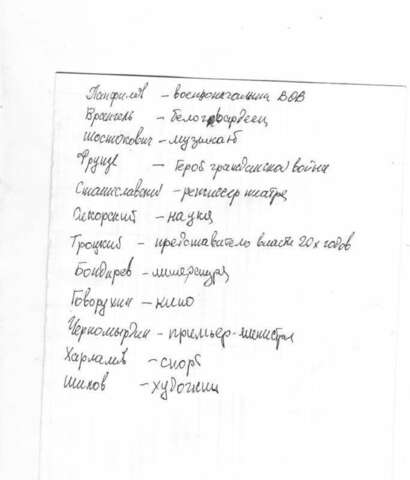 Панфилов – военоначальник ВОВ
Врангель – белогвардеец
Шостокович – музыкант
Фрунзе – Герой гражданской война
Станиславский – режиссер театра
Сикорский – наука
Троцкий – представитель власти 20х годов
Бондырев – литература
Говорухин – кино
Черномырдин – премьер-министр
Харламов – спорт
Шилов – художник